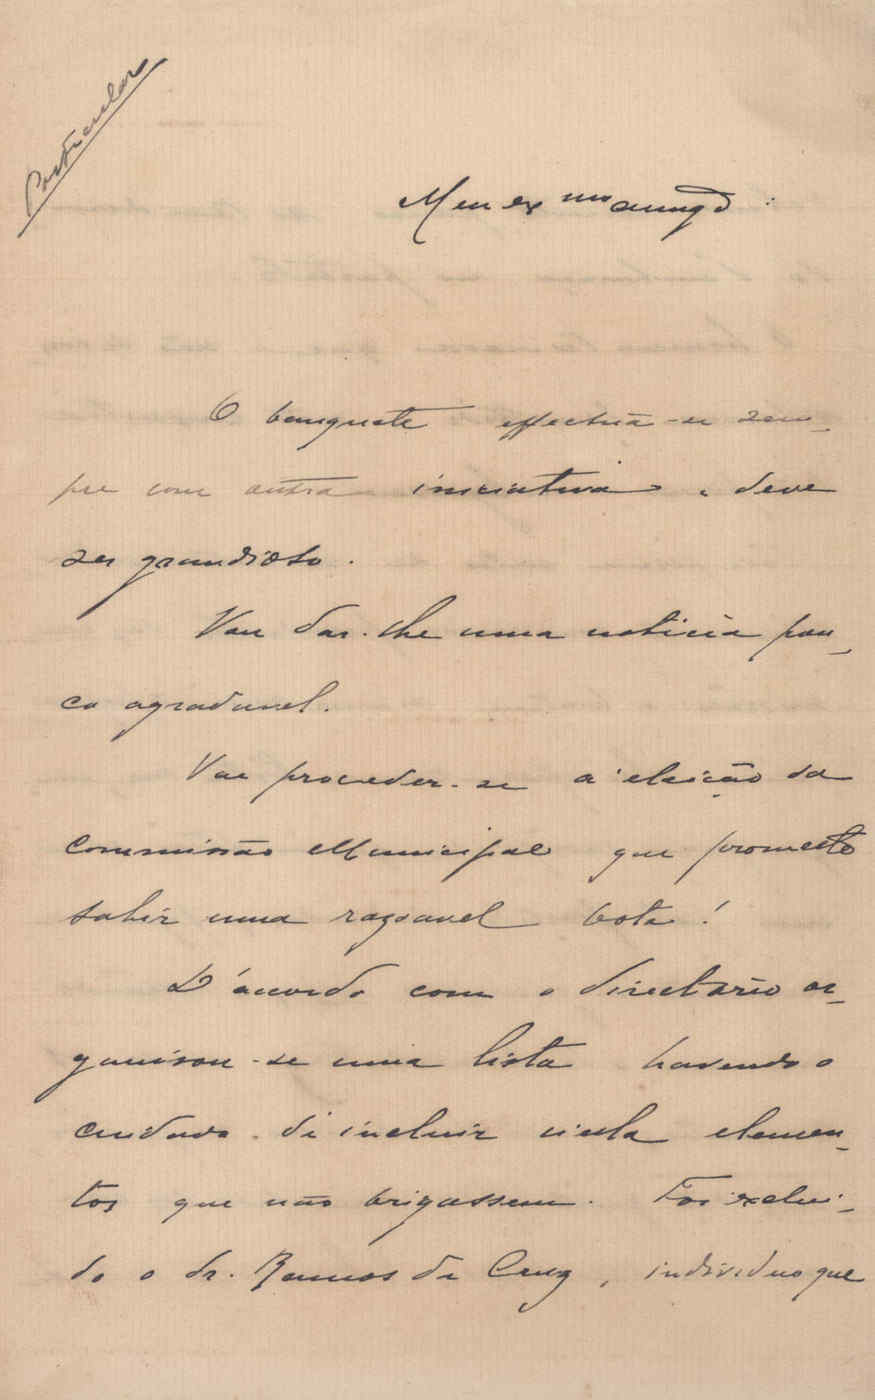 Particular
Meu exmo amigo:
O banquete effectua-se sem-
pre com outra iniciativa e deve
ser grandioso.
Vou dar-lhe uma noticia pou-
co agradavel.
Vae proceder-se a eleição da
commissão Municipal que promette
sahir uma razoavel bota!
D'acordo com o directorio or-
ganisou-se uma lista havendo o
cuidado de incluir n'ella elemen-
tos que não brigassem. Foi exclui-
do o dr. Ramos da Cruz, individuo que